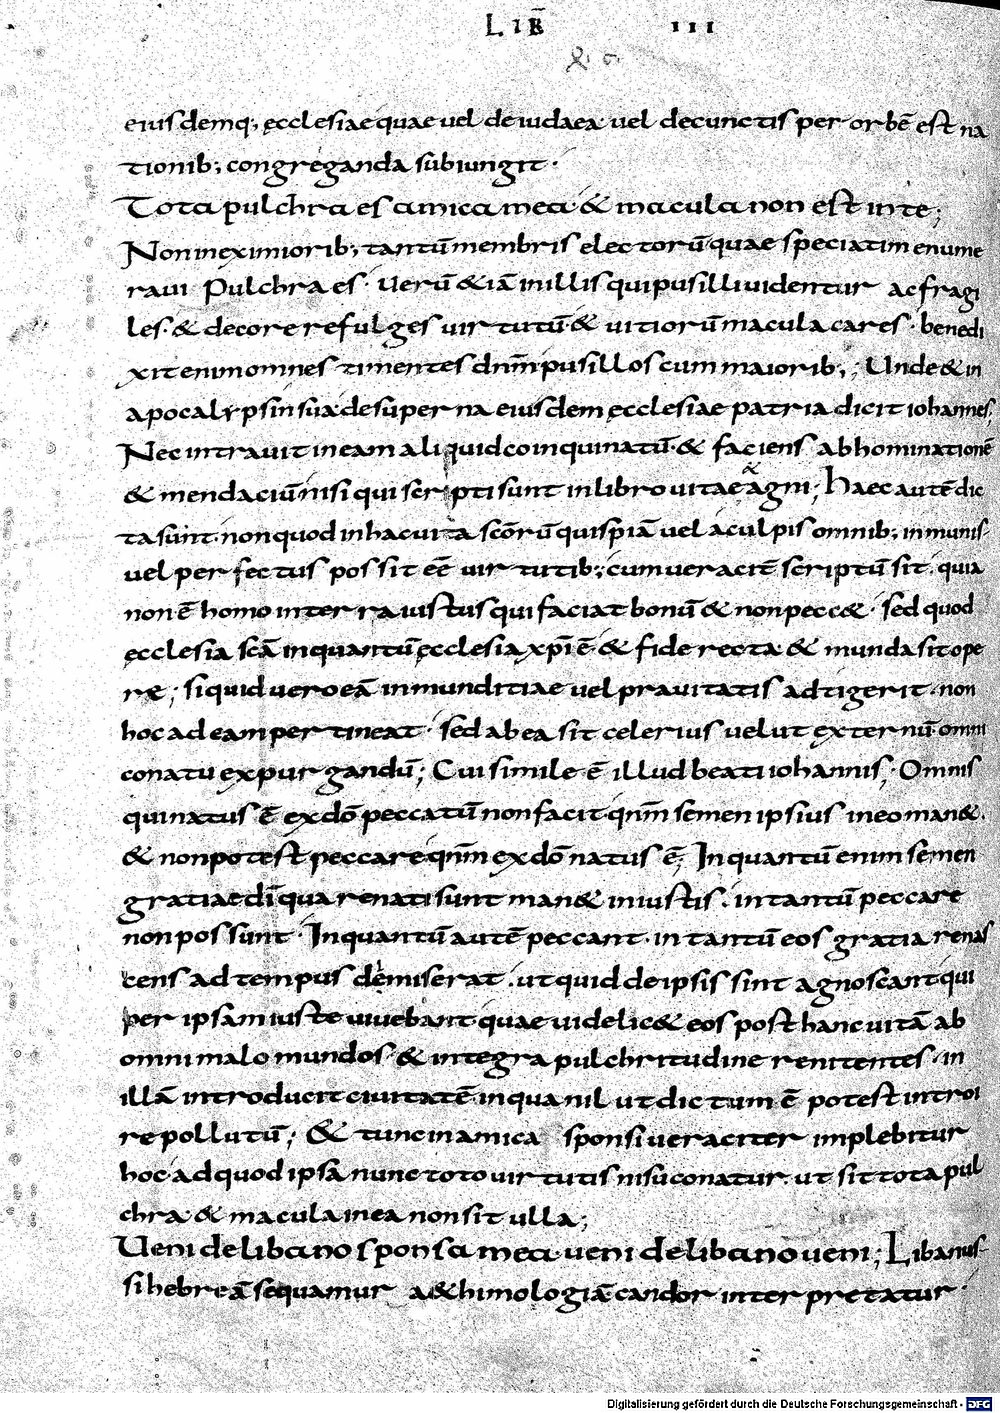 LIB̅ III
& 6
eiusdemq; ęcclesiae quae uel de iudaea uel de cunctis per orbē est na
tionib; congreganda subiungit·
Tota pulchra es amica mea & macula non est in te;
Non in eximiorib; tantū membris electorū quae speciatim enume
raui Pulchra es· uerū & iā in illis qui pusilli uidentur ac fragi
les· & decore refulges uirtutū· & uitiorū macula cares· benedi
xit enim omnes timentes dn̅m pusillos cum maiorib; ; Unde & in
apocalypsi insua de superna eiusdem ęcclesiae patria dicit iohannes;
Nec intrauit in eam aliquid coinquinatū· & faciens abhominationē
& mendaciū nisi qui scripti sunt in libro uitae & agni; Haec autē dic
ta sunt· non quod in hac uita sc̅orū quispiā uel a culpis omnib; inmunis
uel perfectus possit ee̅ uirtutib;, cum ueracit̅ scriptū sit· quia
non ē homo in terra iustus qui faciat bonū & non pecc&· sed quod
ęcclesia sc̅a inquantū ęcclesia xp̅i ē· & fide recta & munda sit ope
re; si quid uero eā inmunditiae uel prauitatis adtigerit· non
hoc ad eam pertineat· sed ab ea sit celerius uelut externū· omni
conatu expurgandū; Cui simile ē illud beati iohannis; Omnis
qui natus ē ex do̅ peccatū non facit· qn̅m semen ipsius in eo man&·
& non potest peccare qn̅m ex do̅ natus ē; Inquantū enim semen
gratiae di̅ qua renati sunt man& in iustis· intantū peccare
non possunt· Inquantū autē peccant· in tantū eos gratia renas
cens ad tempus demiserat· ut quid de ipsis sint agnoscant qui
per ipsam iuste uiuebant quae uidelic& eos post hanc uitā ab
omni malo mundos· & integra pulchritudine renitentes· in
illā introducit ciuitatē in qua nil ut dictum ē potest introi
re pollutū; & tunc in amica sponsi ueraciter implebitur
hoc ad quod ipsā nunc toto uirtutis nisu conatur· ut sit tota pul
chra· & macula in ea non sit ulla;
Ueni de libano sponsa mea· ueni de libano ueni; Libanus
si hebreā sequamur a&himologiā candor interpretatur·
Digitalisierung gefördert durch die Deutsche Forschungsgemeinschaft - DFG